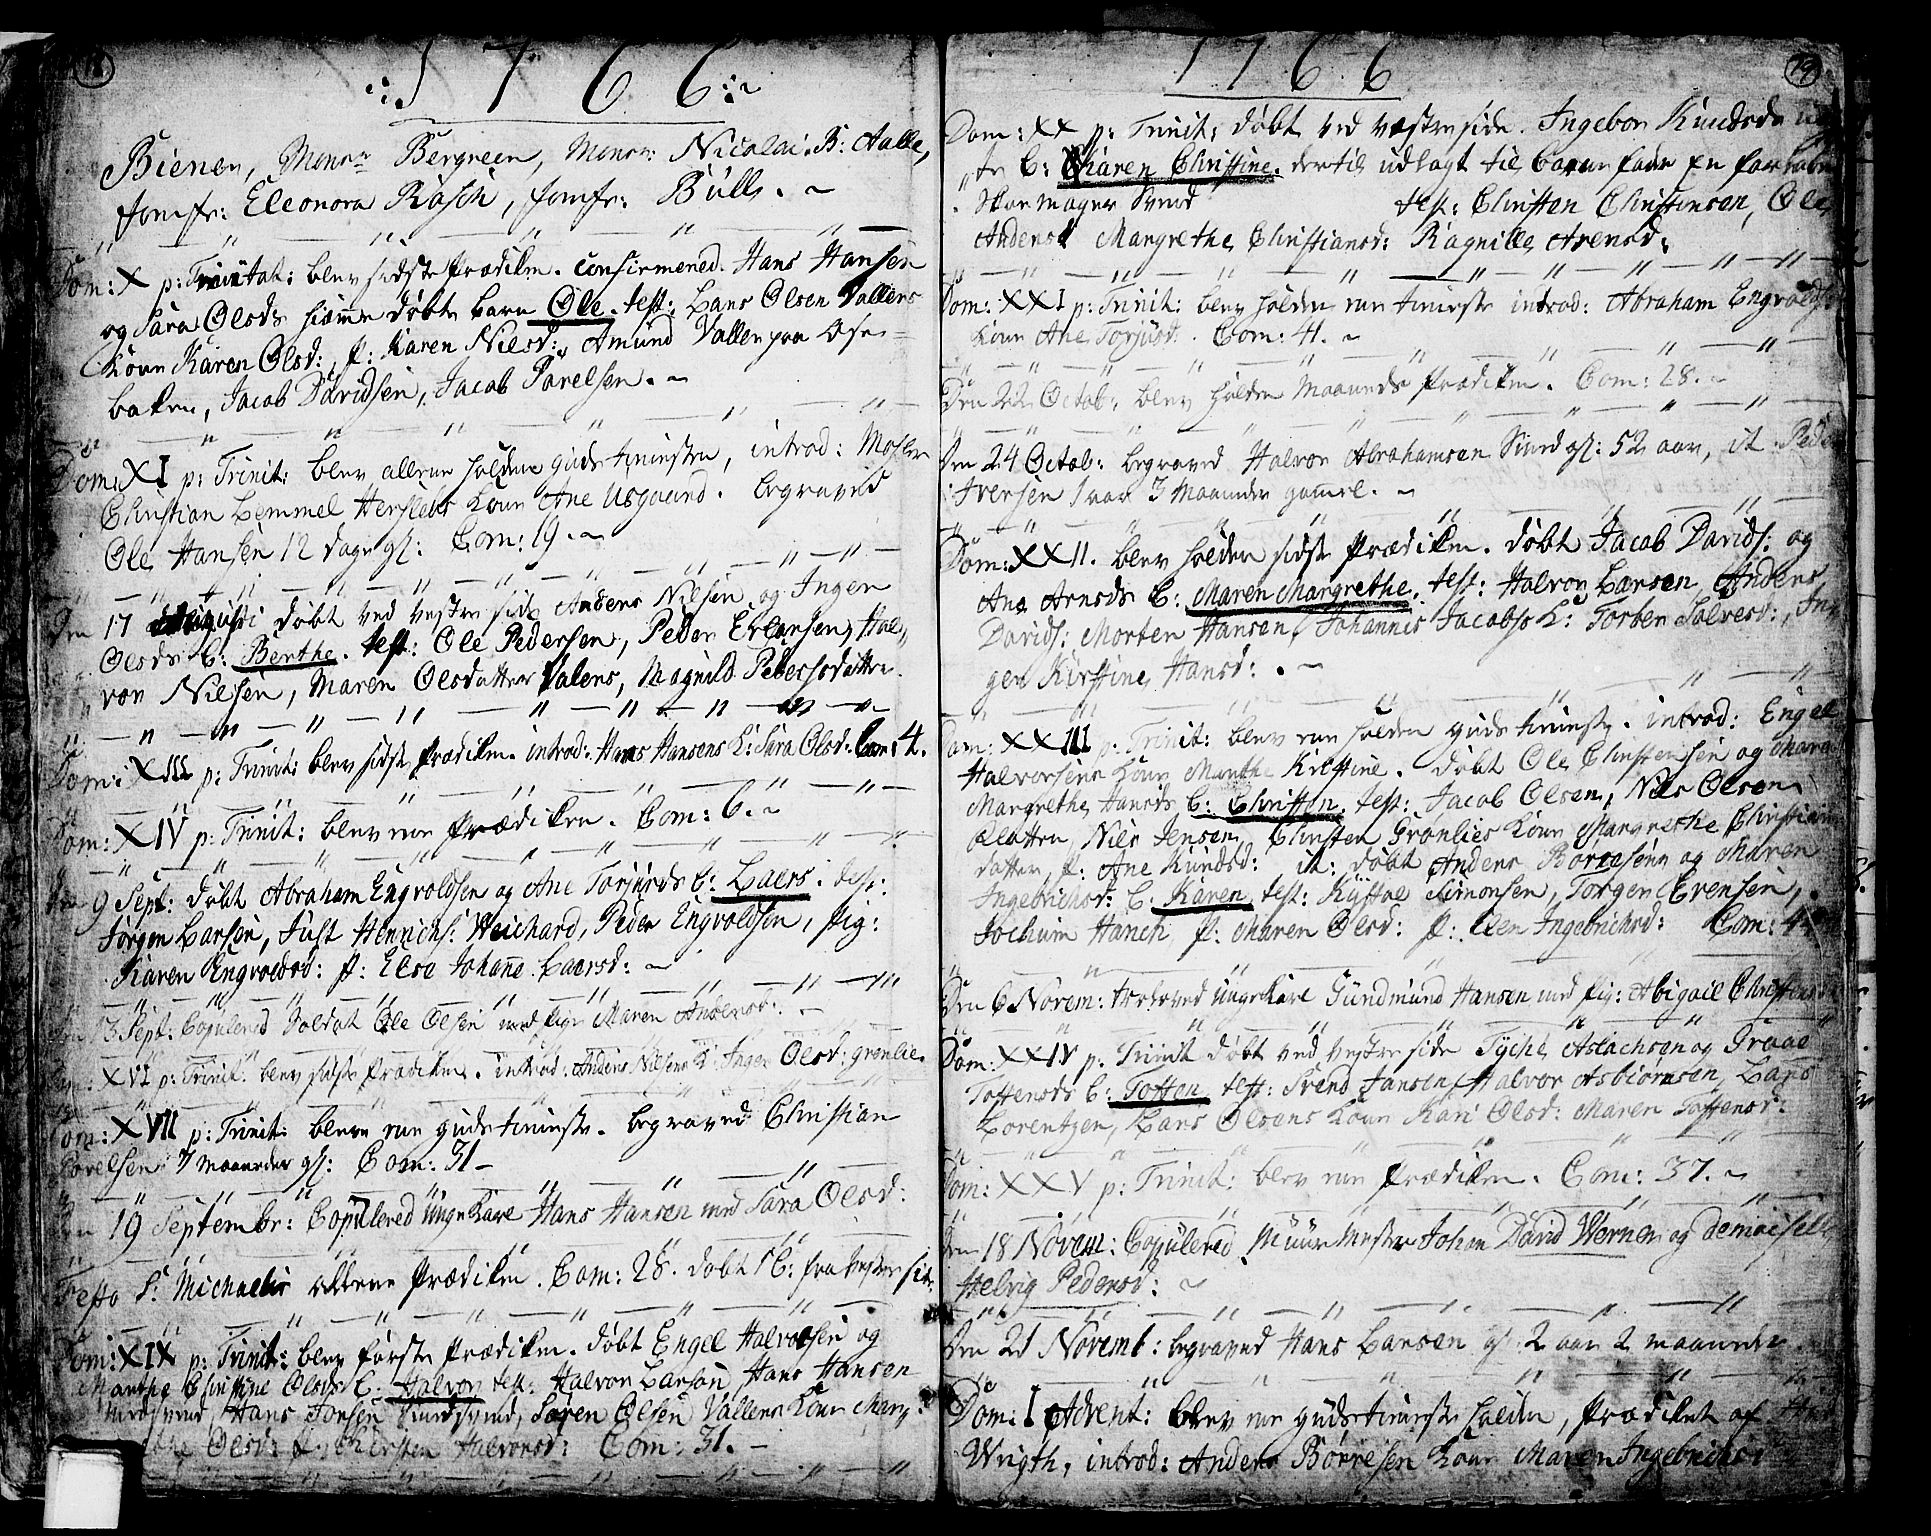 18
1766
Bienen, Monsr Bergreen, Monsr: Nicolai B: Aalle,
Jomfr: Eleonora Rasch, Jomfr: Bull. ~
Dom: X p: Trinitat: blev sidste Prædiken. confirmered. Hans Hansen
og Sara Olsds hiemme døbte barn Ole. test: Lars Olsen Vallens
Kone Karen Olsd:, p: Karen Nielsd:, Amund Vallen paa
baken, Jacob Davidsen, Jacob Povelsen. ~
Dom: XI p: Trinit: blev allene holden gudstieniste, introd:
Christian Lemmel Herslebs Kone Ane Usgaard. begraved
Ole Hansen 12 dage gl: Com: 19. ~
Den 17 Augusti døbt ved Vestre side Anders Nilsen og Inger
Olsds b: Berthe. test: Ole Pedersen, Peder Erlansen, Hal-
vor Nilsen, Maren Olsdatter Valens, Magnild Pedersdatter
Dom: XIII p: Trinit: blev sidste Prædiken. introd: Hans Hansens K: Sara Olsd: Com: 4.
Dom: XIV p: Trinit: blev een Prædiken. Com: 6. ~
Den 9 Sept: døbt Abraham Engvoldsen og Ane Torjusds b: Laers. test:
Jørgen Larsen, Just Henrichs: Weichard, Peder Engvoldsen, pig:
Karen Engvoldsd: p: Else Johane Laersd: ~
Den 13 Sept: Copulered Soldat Ole Olsen med pige Maren Andersd: ~
Dom: XVI p: Trinit: blev sidste Prædiken. introd: Anders Nilsens K: Inger Olsd: grønlie.
Dom: XVII p: Trinit: bleve een gudstieniste. begraved Christian
Povelsen 7 maaneder gl: Com: 31 -
Den 19 Septembr: Copulered Ungekarl Hans Hansen med Sara Olsd:
Festo S: Michaelis allene Prædiken. Com: 28. døbt 1 b: fra Vestre side
Dom: XIX p: Trinit: blev første Prædiken. døbt Engel Halvorsen og
Marthe Christine Olsds b: Halvor test: Halvor Larsen, Hans Hansen
Hans Jonsen Sundsund, Søren Olsen Vallens Kone Marg-
rethe Olsd: p: Kiersten Halvorsd: Com: 31. -
19
1766
Dom: XX p: Trinit: døbt ved Vestre side. Ingebor Knudsds
b: Karen Christine. dertil udlagt til barnefader En
Skomager Svend test: Christen Christensen, Ole
Andersd Margrethe Christiansd: Ragnille Arensd:
Dom: XXI p: Trinit: blev holden een tieniste introd: Abraham Engvolds
Kone Ane Torjusd: Com: 41. ~
Den 22 Octob: blev holden Maaneds Prædiken. Com: 28. ~
Den 24 Octob: begraved Halvor Abrahamsen Sund gl: 52 aar, it. Peder
Iversen 1 aar 3 Maaneder gammel. ~
Dom: XXII. blev holden sidste Prædiken. døbt Jacob Davids: og
Ane Arnsds b: Maren Margrethe. test: Halvor Larsen, Anders
Davids: Morten Hansen, Johannis Jacobss K: Torber Salvesd: In-
ger Kirstine Hansd: . ~
Dom: XXIII p: Trinit: blev een holden gudstieniste. introd: Engel
Halvorsens Kone Marthe Kirstine. døbt Ole Christensen og Maren
Margrethe Jansds b: Christen. test: Jacob Olsen, Nils Olsen
Nils Jensen, Christen Grønlies Kone Margrethe Christians
datter, p: Ane Knudsd: it: døbt Anders Børresens og Maren
Ingebrichsd: b. Karen test: Simonsen, Torger Evensen,
Jochum Hanch p: Maren Olsd: p: Ingebrichsd: Com: 4
Den 6 Novem: troloved Ungekarl Gundmund Hansen med pig: Abigael Christensd
Dom: XXIV p: Trinit døbt ved Vestre side Tyche Aslachsen og
Toftensds b: Toften test: Svend Jansen, Halvor Asbiørnsen, Lars
Lorentzen, Lars Olsens Kone Kari Olsd: Maren Toftensd:
Dom: XXV p: Trinit: blev een Prædiken. Com: 37. ~
Den 18 Novem: Copulered Muurmester Johan David Werner og demoiselle
Helvig Pedersd: ~
Den 21 Novemb: begraved Hans Larsen gl: 2 aar 2 maaneder
Dom: I Advent: blev een gudstieniste holden, Prædiket af
Wrigth, introd: Anders Børresen Kone Maren Ingebrichsd